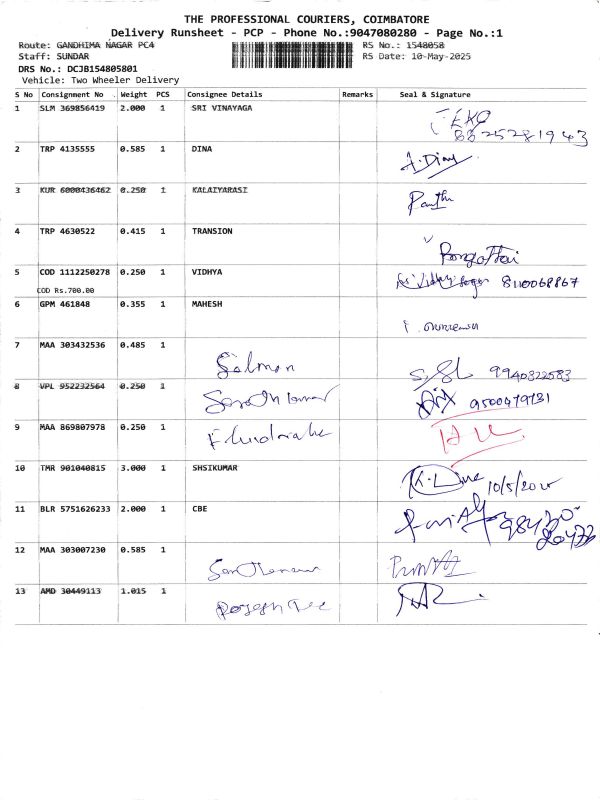 THE PROFESSIONAL COURIERS, COIMBATORE
Delivery Runsheet - PCP - Phone No.:9047080280 - Page No.:1
Route: GANDHIMA NAGAR PC4 RS No.: 1548058
Staff: SUNDAR RS Date: 10-May-2025
DRS No.: DCJB154805801
Vehicle: Two Wheeler Delivery
S No Consignment No Weight PCS Consignee Details Remarks Seal & Signature
1 SLM 369856419 2.000 1 SRI VINAYAGA
8825281943
2 TRP 4135555 0.585 1 DINA
3 KUR 6000436462 0.250 1 KALAIYARASI
4 TRP 4630522 0.415 1 TRANSION
5 COD 1112250278 0.250 1 VIDHYA 8110068867
COD Rs.700.00
6 GPM 461848 0.355 1 MAHESH
7 MAA 303432536 0.485 1 Salman 9940822583
8 VPL 952232564 0.250 1 9500479131
9 MAA 869807978 0.250 1
10 TMR 901040815 3.000 1 SHSIKUMAR 10/5/2025
11 BLR 5751626233 2.000 1 CBE
12 MAA 303007230 0.585 1
13 AMD 30449113 1.015 1